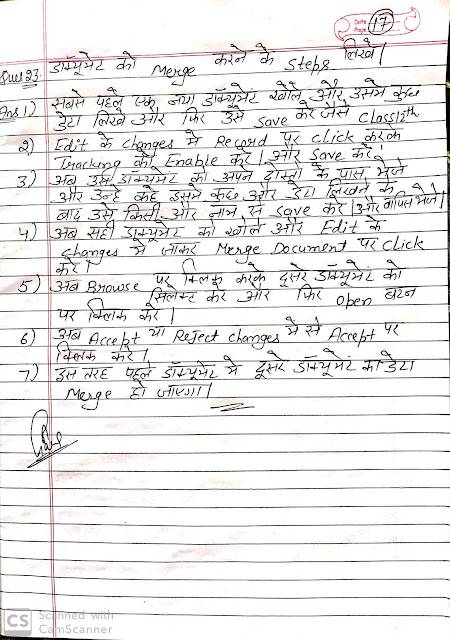 Date
Page 17
Ques 23. डॉक्यूमेंट को Merge करने के steps लिखे।
Ans 1) सबसे पहले एक नया डॉक्यूमेंट खोले और उसमे कुछ
डेटा लिखे और फिर उसे save करे जैसे Class12th
2) Edit के changes में Record पर click करके
Tracking को Enable करे। और save करे।
3) अब उस डॉक्यूमेंट को अपने दोस्तों के पास भेजे
और उन्हे कहे इसमे कुछ और डेटा लिखने के
बाद उसे किसी और नाम से save करे। और वापिस भेजे।
4) अब सही डॉक्यूमेंट को खोले और Edit के
changes में जाकर Merge Document पर click
करे।
5) अब Browse पर क्लिक करके दूसरे डॉक्यूमेंट को
सिलेक्ट करे और फिर open बटन
पर क्लिक करे।
6) अब Accept या Reject changes में से Accept पर
क्लिक करे।
7) इस तरह पहले डॉक्यूमेंट मे दूसरे डॉक्यूमेंट का डेटा
Merge हो जाएगा।
CS Scanned with
CamScanner